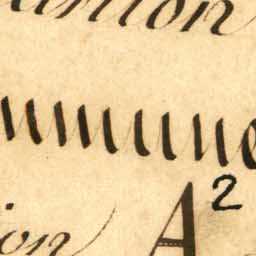 union
ommune
ion A 2